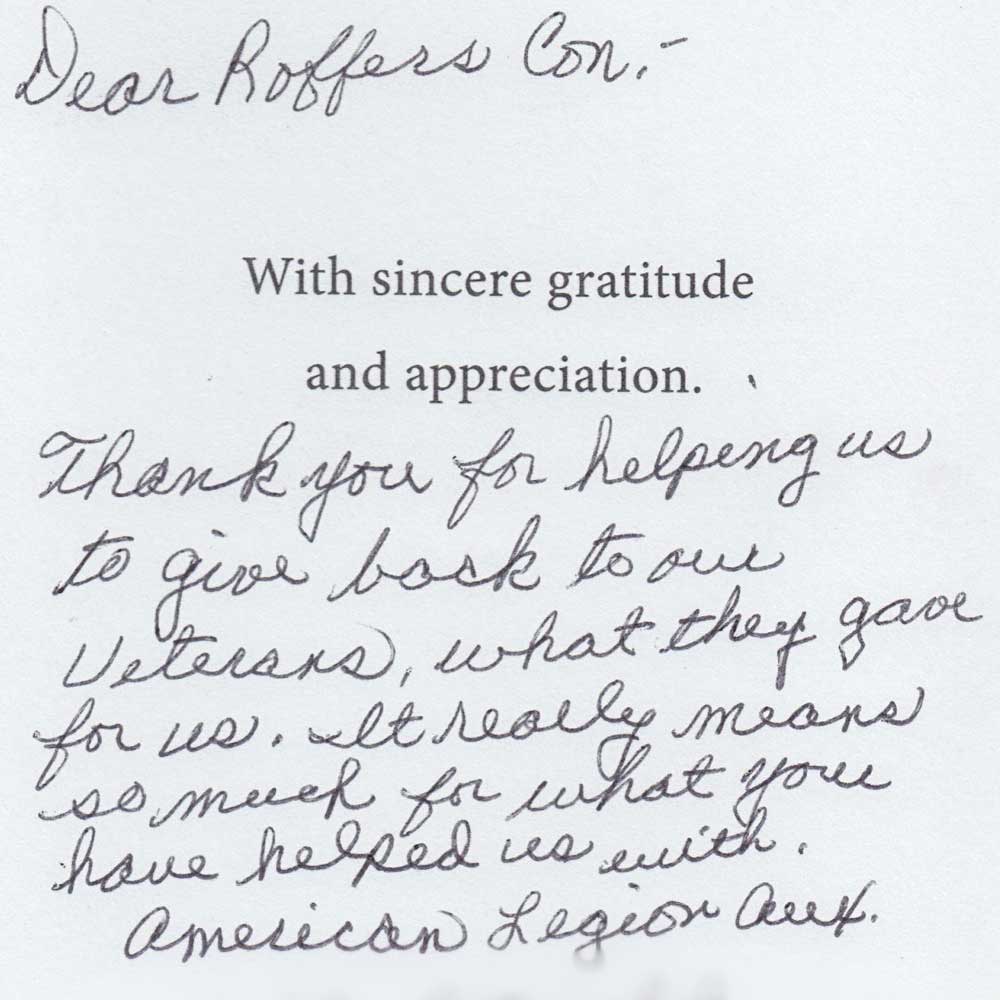 Dear Roffers Con.-
With sincere gratitude
and appreciation.
Thank you for helping us
to give back to our
Veterans, what they gave
for us. It really means
so much for what you
have helped us with.
American Legion Aux.